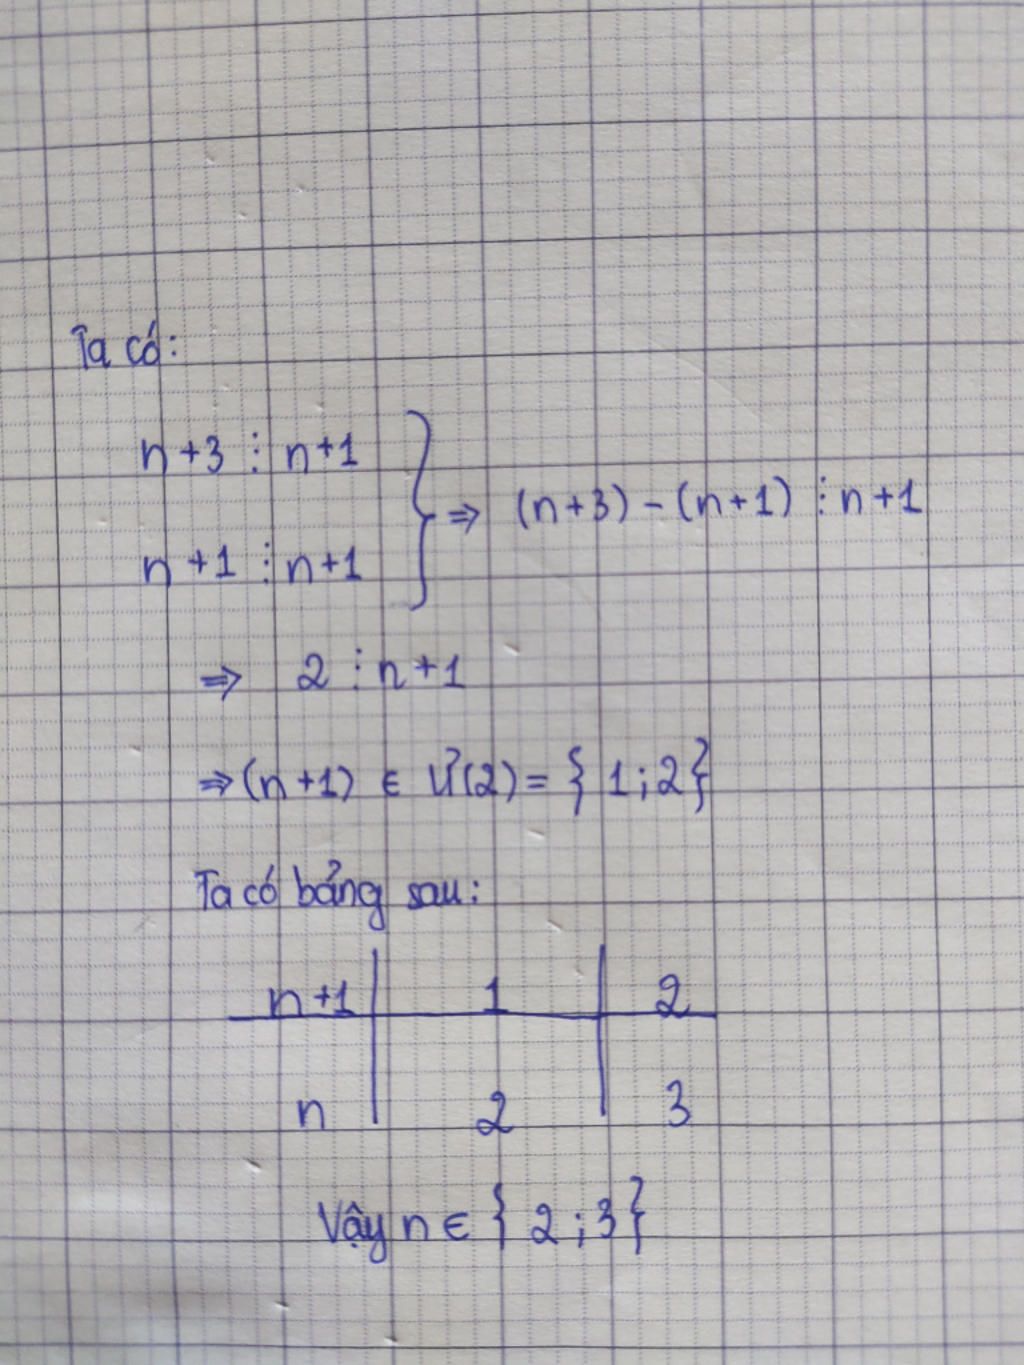 Ta có:
n+3 ⋮ n+1
n+1 ⋮ n+1
⇒ (n+3) - (n+1) ⋮ n+1
⇒ 2 ⋮ n+1
⇒ (n+1) ∈ Ư(2) = { 1; 2}
Ta có bảng sau:
n+1 1 2
n 2 3
Vậy n ∈ { 2 ; 3}